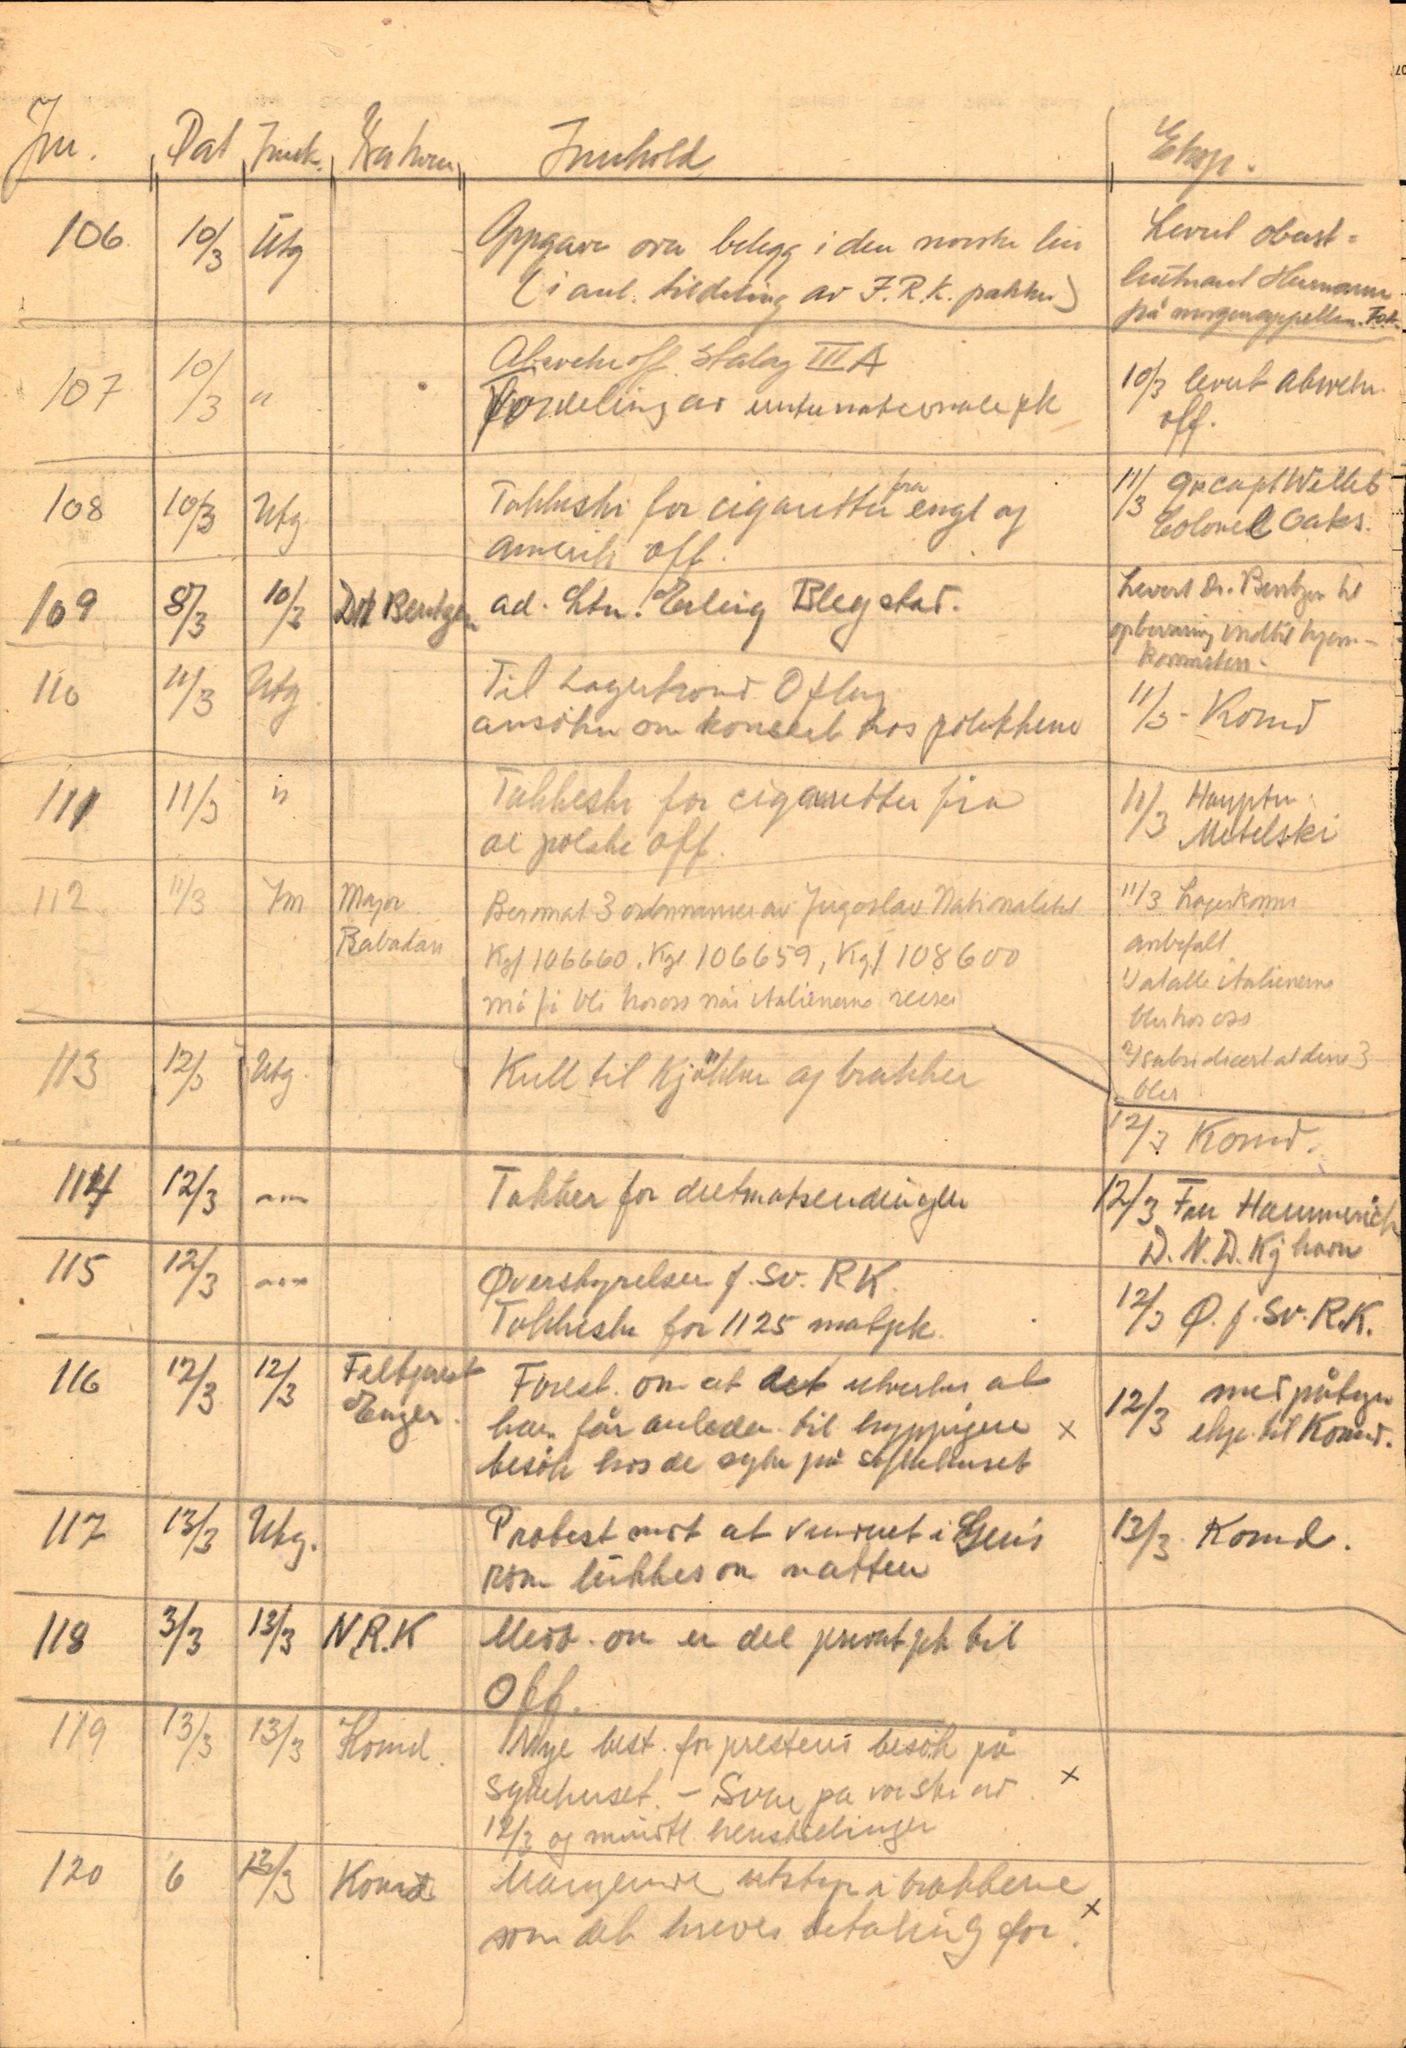 Jnr. Dat Innk. Innhold Eksp.
106 10/3 Utg Oppgave over belegg i den norske leir Levert oberst-
(i anl. tildeling av I.R.K. pakker) løitnant Hermann
på morgenappellen.
107 10/3 " Abwehroff. Stalag III A 10/3 levert Abwehr
Fordeling av internationale pk off.
108 10/3 Utg Takkeskr for cigaretter fra engl og 11/3 Grcapt Willet
amerik off. Colonel Oaks.
109 8/3 10/3 Dr Bentzen ad. Ltn. Erling Blegstad. Levert Dr. Bentzen til
opbevaring indtil hjem-
komsten.
110 11/3 Utg Til Lagerkomd Oflag 11/3 - Komd
ansökn om konsert hos polakkene
111 11/3 " Takkeskr for cigaretter fra 11/3 Hauptm.
de polske off. Metelski
112 11/3 Inn Major Ber om at 3 ordonnanser av Jugoslav Nationalitet 11/3 Lagerkomm
Rabadan Kgf 106660, Kgf 106659, Kgf 108600 anbefalt
må få bli hos oss når italienerne reiser 1) at alle italienerne
blir hos oss
2) subsidiært at disse 3
blir
113 12/3 Utg. Kull til kjökken og brakker 12/3 Komd.
114 12/3 -"- Takker for diettmatsendingen 12/3 Fru Hammerich
D.N.D. Kjhavn
115 12/3 -"- Øverstyrelsen f. Sv. R.K. 12/3 Ø. f. Sv. R.K.
Takkeskr for 1125 matpk.
116 12/3 12/3 Feltprest Forest. om at det utvirkes at 12/3 med påtegn
Enger. han får anledn. til hyppigere x eksp. til Komd.
besök hos de syke på sykehuset
117 13/3 Utg. Protest mot at vinduet i 13/3 Komd.
rom lukkes om natten
118 3/3 13/3 N.R.K Medd. om en del privatpk til
Off.
119 13/3 13/3 Komd. Nye best. for prestens besök på
sykehuset. - Svar på vor skr av x
12/3 og mundtl henstillinger
120 6 13/3 Komd Manglende utstyr i brakkene
som det kreves betaling for. x